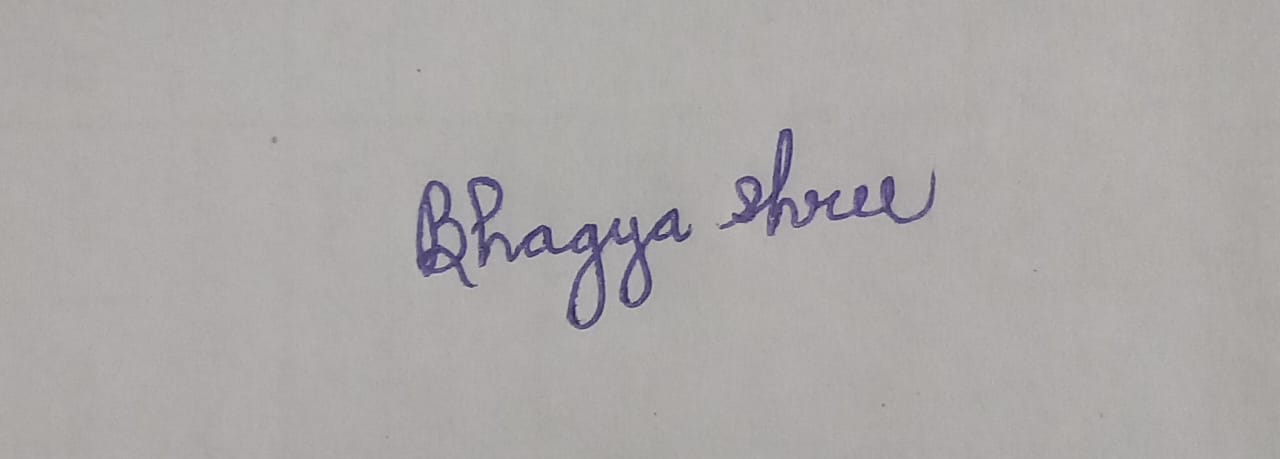 Bhagya shree